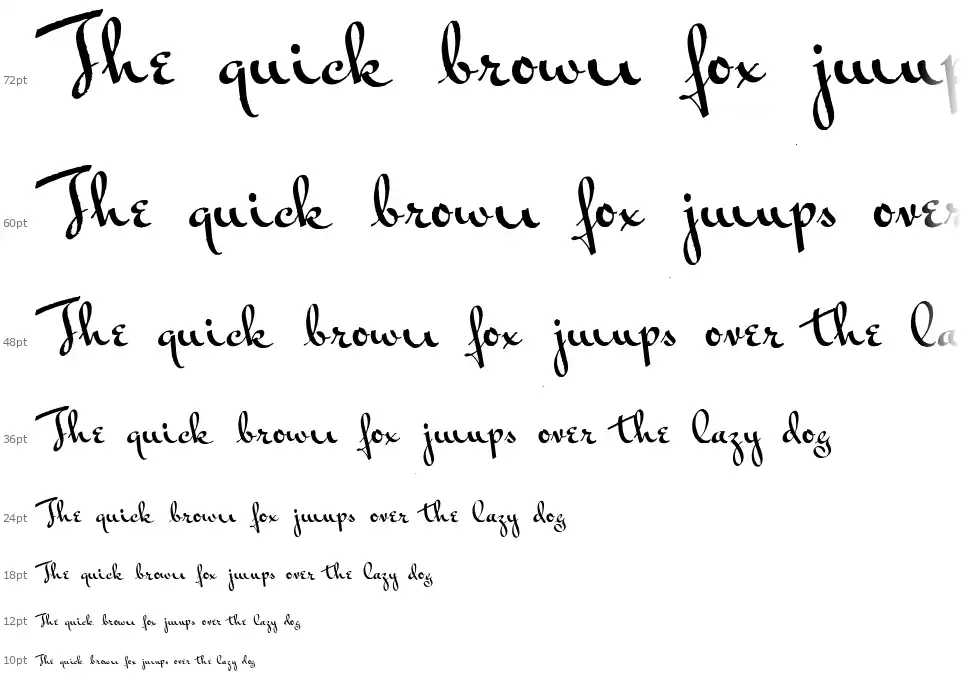 72pt The quick brown fox jump
60pt The quick brown fox jumps over
48pt The quick brown fox jumps over the la
36pt The quick brown fox jumps over the lazy dog
24pt The quick brown fox jumps over the lazy dog
18pt The quick brown fox jumps over the lazy dog
12pt The quick brown fox jumps over the lazy dog
10pt The quick brown fox jumps over the lazy dog